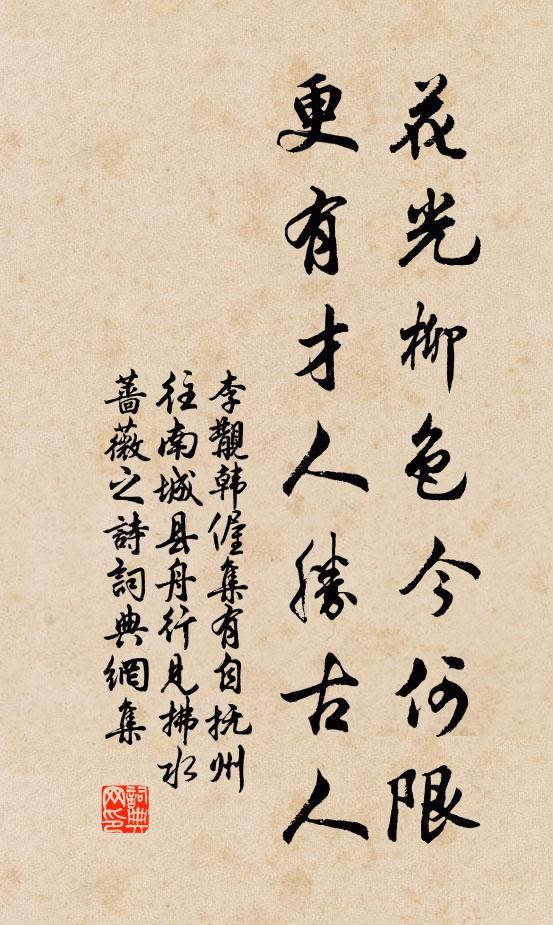 花光柳色今何限
更有才人勝古人
李覯韩偓集有自抚州
往南城县舟行见拂水
薔薇之詩詞典網集
詞典
网印